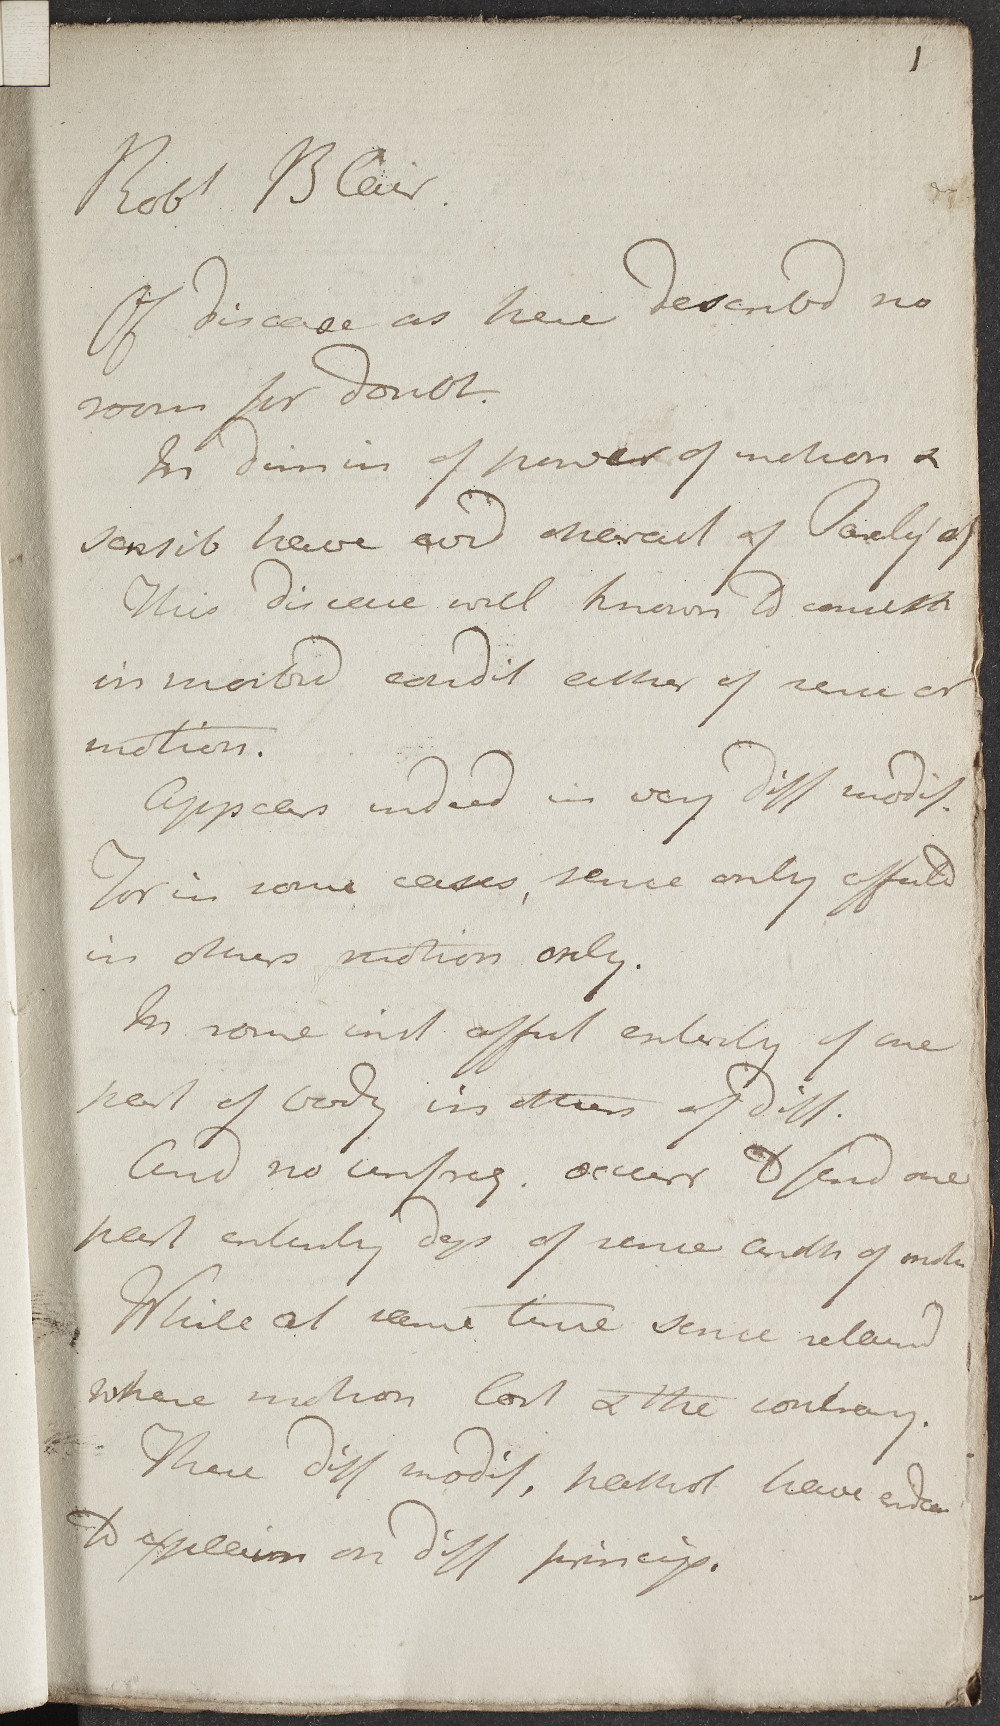 1
Robt Blair.
Of disease as here describd no
room for doubt.
In dimin of power of motion &
sensib have evid charact of Paralys
This disease well known to consist
in morbid condit either of sense or
motion.
Appears indeed in very diff modif.
For in some cases, sense only affectd
in others motion only.
In some inst affect entirely of one
part of body in others of diff.
And no unfreq. occurr to find one
part entirely depr of sense anoth of motn
While at same time sense retaind
where motion lost & the contrary.
These diff modif, pathol have endea
to explain on diff princip.